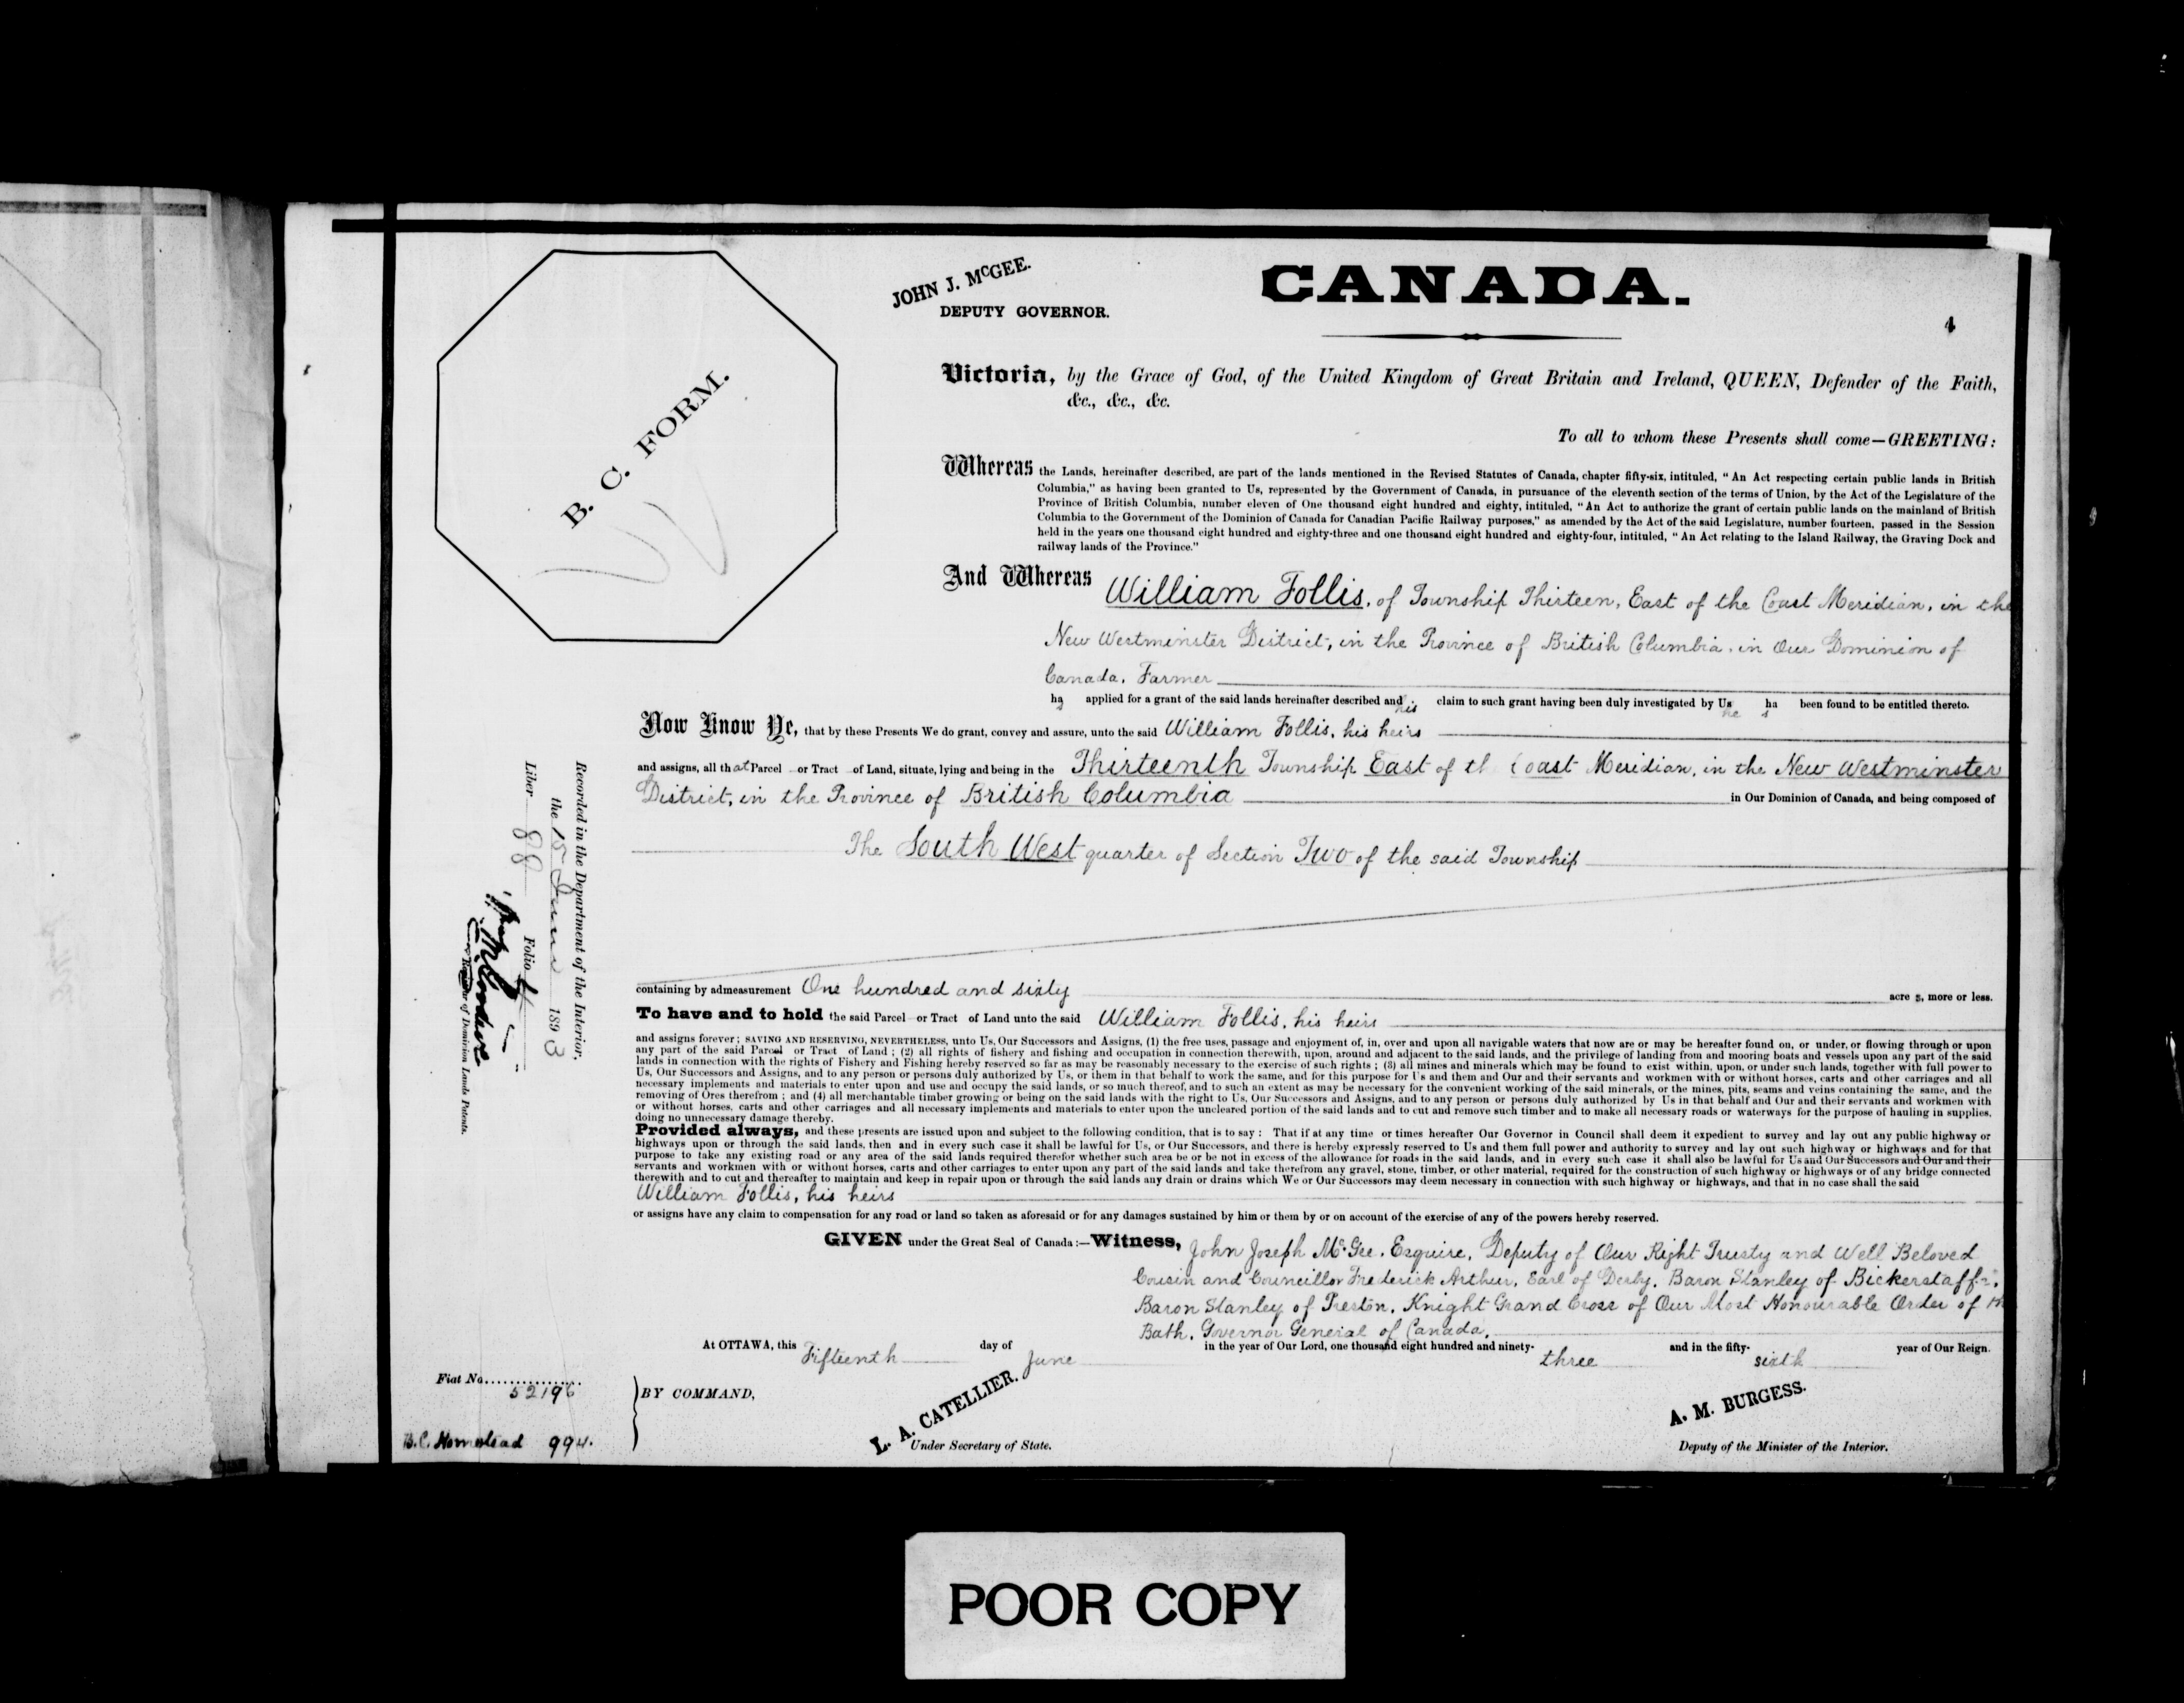 JOHN J. McGEE.
DEPUTY GOVERNOR.
CANADA.
B. C. FORM.
Victoria, by the Grace of God, of the United Kingdom of Great Britain and Ireland, QUEEN, Defender of the Faith,
&c., &c., &c.
To all to whom these Presents shall come—GREETING:
Whereas the Lands, hereinafter described, are part of the lands mentioned in the Revised Statutes of Canada, chapter fifty-six, intituled, "An Act respecting certain public lands in British
Columbia," as having been granted to Us, represented by the Government of Canada, in pursuance of the eleventh section of the terms of Union, by the Act of the Legislature of the
Province of British Columbia, number eleven of One thousand eight hundred and eighty, intituled, "An Act to authorize the grant of certain public lands on the mainland of British
Columbia to the Government of the Dominion of Canada for Canadian Pacific Railway purposes," as amended by the Act of the said Legislature, number fourteen, passed in the Session
held in the years one thousand eight hundred and eighty-three and one thousand eight hundred and eighty-four, intituled, "An Act relating to the Island Railway, the Graving Dock and
railway lands of the Province."
And Whereas William Follis, of Township Thirteen, East of the Coast Meridian, in the
New Westminster District, in the Province of British Columbia, in Our Dominion of
Canada, Farmer
has applied for a grant of the said lands hereinafter described and his claim to such grant having been duly investigated by Us he has been found to be entitled thereto.
Now Know Ye, that by these Presents We do grant, convey and assure, unto the said William Follis, his heirs
and assigns, all that Parcel or Tract of Land, situate, lying and being in the Thirteenth Township East of the Coast Meridian, in the New Westminster
District, in the Province of British Columbia in Our Dominion of Canada, and being composed of
The South West quarter of Section Two of the said Township
containing by admeasurement One hundred and sixty acres, more or less.
To have and to hold the said Parcel or Tract of Land unto the said William Follis, his heirs
and assigns forever; SAVING AND RESERVING, NEVERTHELESS, unto Us, Our Successors and Assigns, (1) the free uses, passage and enjoyment of, in, over and upon all navigable waters that now are or may be hereafter found on, or under, or flowing through or upon
any part of the said Parcel or Tract of Land; (2) all rights of fishery and fishing and occupation in connection therewith, upon, around and adjacent to the said lands, and the privilege of landing from and mooring boats and vessels upon any part of the said
lands in connection with the rights of Fishery and Fishing hereby reserved so far as may be reasonably necessary to the exercise of such rights; (3) all mines and minerals which may be found to exist within, upon, or under such lands, together with full power to
Us, Our Successors and Assigns, and to any person or persons duly authorized by Us, or them in that behalf to work the same, and for this purpose for Us and them and Our and their servants and workmen with or without horses, carts and other carriages and all
necessary implements and materials to enter upon and use and occupy the said lands, or so much thereof, and to such an extent as may be necessary for the convenient working of the said minerals, or the mines, pits, seams and veins containing the same, and the
removing of Ores therefrom; and (4) all merchantable timber growing or being on the said lands with the right to Us, Our Successors and Assigns, and to any person or persons duly authorized by Us in that behalf and Our and their servants and workmen with
or without horses, carts and other carriages and all necessary implements and materials to enter upon the uncleared portion of the said lands and to cut and remove such timber and to make all necessary roads or waterways for the purpose of hauling in supplies,
doing no unnecessary damage thereby.
Provided always, and these presents are issued upon and subject to the following condition, that is to say: That if at any time or times hereafter Our Governor in Council shall deem it expedient to survey and lay out any public highway or
highways upon or through the said lands, then and in every such case it shall be lawful for Us, or Our Successors, and there is hereby expressly reserved to Us and them full power and authority to survey and lay out such highway or highways and for that
purpose to take any existing road or any area of the said lands required therefor whether such area be or be not in excess of the allowance for roads in the said lands, and in every such case it shall also be lawful for Us and Our Successors and Our and their
servants and workmen with or without horses, carts and other carriages to enter upon any part of the said lands and take therefrom any gravel, stone, timber, or other material, required for the construction of such highway or highways or of any bridge connected
therewith and to cut and thereafter to maintain and keep in repair upon or through the said lands any drain or drains which We or Our Successors may deem necessary in connection with such highway or highways, and that in no case shall the said
William Follis, his heirs
or assigns have any claim to compensation for any road or land so taken as aforesaid or for any damages sustained by him or them by or on account of the exercise of any of the powers hereby reserved.
GIVEN under the Great Seal of Canada:—Witness, John Joseph McGee, Esquire, Deputy of Our Right Trusty and Well Beloved
Cousin and Councillor Frederick Arthur, Earl of Derby, Baron Stanley of Bickerstaffe,
Baron Stanley of Preston, Knight Grand Cross of Our Most Honourable Order of the
Bath, Governor General of Canada,
At OTTAWA, this Fifteenth day of June in the year of Our Lord, one thousand eight hundred and ninety-three and in the fifty-sixth year of Our Reign.
Fiat No. 52196
BY COMMAND,
L. A. CATELLIER.
Under Secretary of State.
A. M. BURGESS.
Deputy of the Minister of the Interior.
B.C. Homestead 994.
Recorded in the Department of the Interior,
the 15 June 1893
Liber 88 Folio 4
of Dominion Lands Patents.
POOR COPY